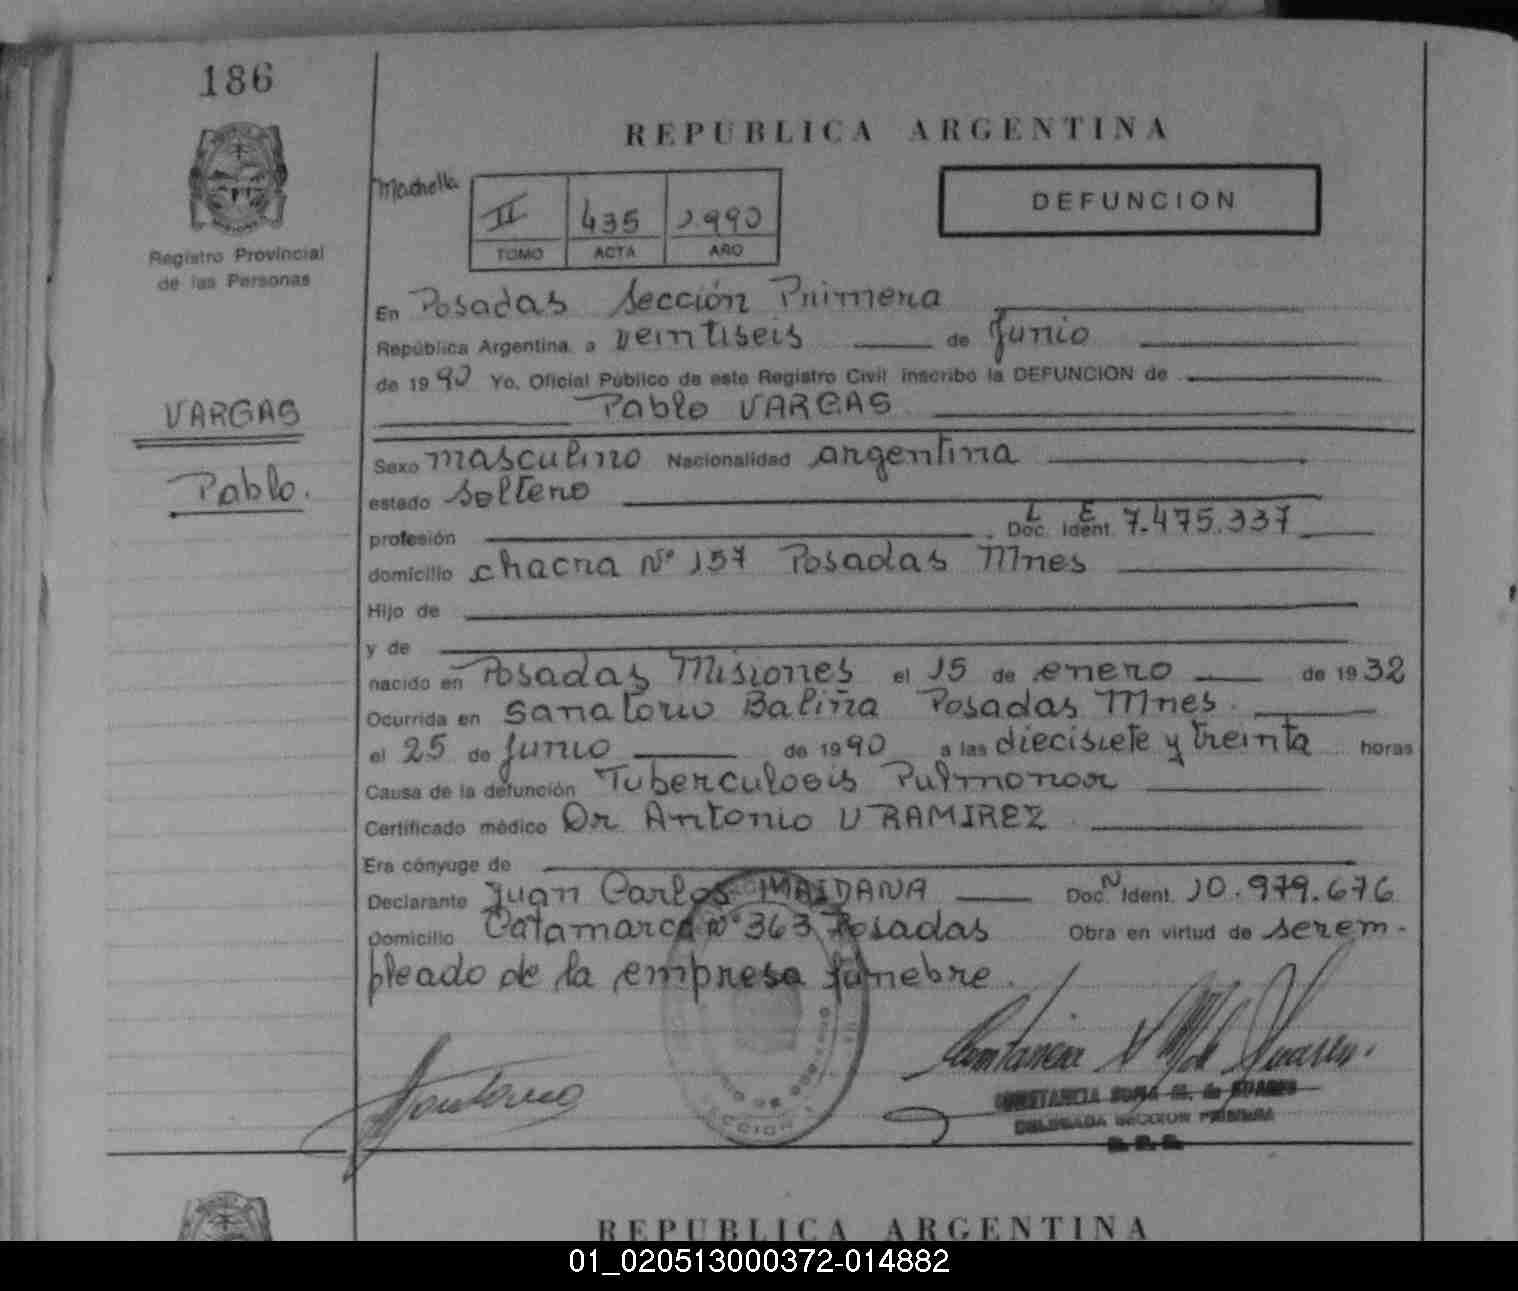 186
REPUBLICA ARGENTINA
Registro Provincial
de las Personas
II 435 1.990
TOMO ACTA AÑO
DEFUNCION
En Posadas Sección Primera
República Argentina, a veintiseis de Junio
de 1990 Yo, Oficial Público de este Registro Civil inscribo la DEFUNCION de
Pablo VARGAS
VARGAS
Pablo.
Sexo masculino Nacionalidad argentina
estado soltero
profesión Doc. Ident. L E 7.475.337
domicilio chacra Nº 157 Posadas Mnes
Hijo de
y de
nacido en Posadas Misiones el 15 de enero de 1932
Ocurrida en Sanatorio Baliña Posadas Mnes.
el 25 de Junio de 1990 a las diecisiete y treinta horas
Causa de la defunción Tuberculosis Pulmonar
Certificado médico Dr. Antonio V RAMIREZ
Era cónyuge de
Declarante Juan Carlos MAIDANA Doc. N Ident. 10.979.676
Domicilio Catamarca Nº 363 Posadas Obra en virtud de ser em-
pleado de la empresa fúnebre.
CONSTANCIA SOFIA M. de SUAREZ
DELEGADA SECCION PRIMERA
REPUBLICA ARGENTINA
01_020513000372-014882